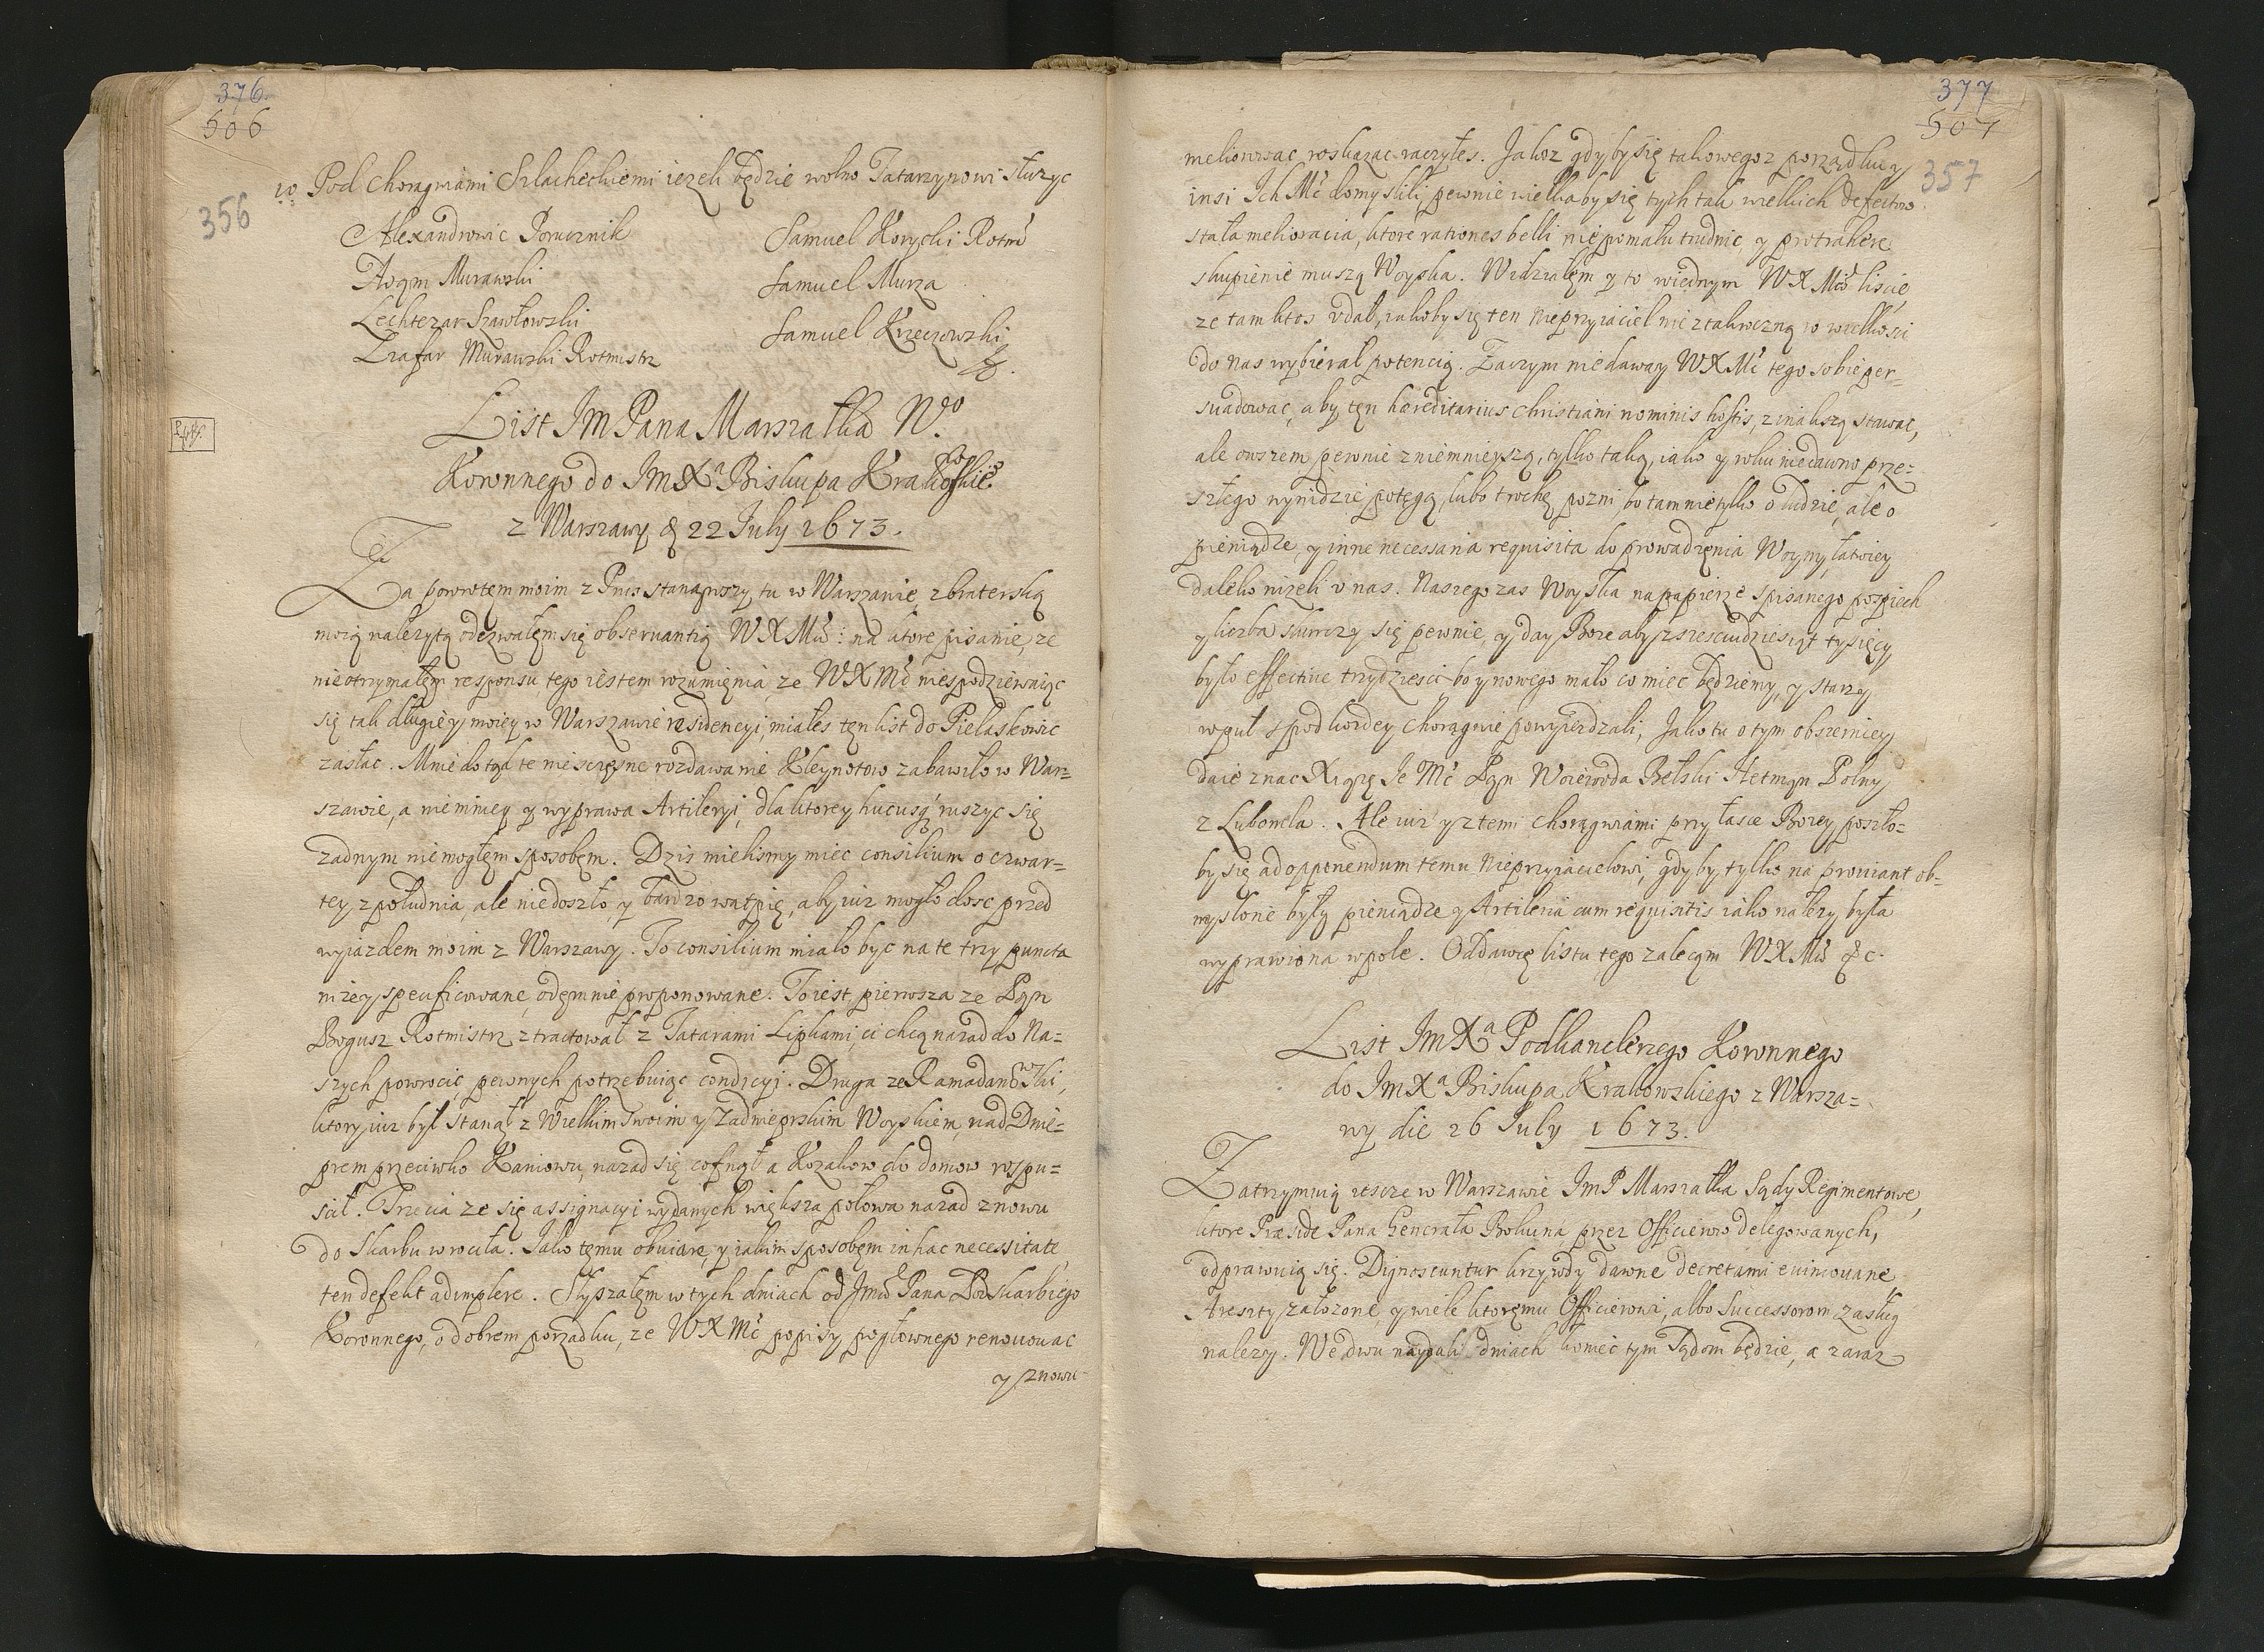 376.
506
356
10 Pod Choragwiami Szlacheckiemi iezeli będzie wolno Tatarzynowi słuzyc
Alexandrowic Porucznik
Samuel Korycki Rotm
Murawski
Samuel Murza
Szawłowski
Samuel Krzeczowski
Murawski Rotmistrz
List JM Pana Marszałka Wo
Koronnego do JmXa Biskupa Krakowskie
z Warszawy d 22 July 1673.
Za powrotem moim z Prus stanąwszy tu w Warszawie, z braterską
moią nalezytą odezwałem się obserwantią WXMci: na ktore pisanie, ze
nie otrzymałem responsu, tego iestem rozumienia ze WXMc niespodziewaiąc
się tak długiey moiey w Warszawie residencyi, miałes ten list do Pielaskowic
zasłac. Mnie dotąd te niesczęsne rozdawanie Kleynotow zabawiło w War=
szawie, a niemniey y wyprawa Artileryi, dla ktorey hucusq ruszyc się
zadnym niemogłem sposobem. Dzis mielismy miec consilium o czwar=
tey z południa, ale niedoszło, y bardzo wątpię, aby iuz mogło dosc przed
wyiazdem moim z Warszawy. To consilium miało byc na te trzy puncta
nizey specificowane, odemnie proponowane. To iest, pierwsza ze Pan
Bogusz Rotmistrz ztractował z Tatarami Lipkami, ci chcą nazad do Na=
szych powrocic, pewnych potrzebuiąc condicyi. Druga ze Ramadanowski,
ktory iuz był stanął z Wielkim swoim y Zadnieprskim Woyskiem, nad Dnie=
prem przeciwko Kaniowu, nazad się cofnął a Kozakow do domow rospu=
scił. Trzecia ze się assignacyi wydanych większa połowa nazad znowu
do Skarbu wrociła. Jako temu obuiare, y iakim sposobem in hac necessitate
ten defekt adimplere. Słyszałem w tych dniach od Jmci Pana Podskarbiego
Koronnego, o dobrem porządku, ze WXMc popisy pogłownego renouowac
y znowu
377
507
357
meliorowac roskazac raczyłes. Jakoz gdyby się takowegoz porządku y
insi Ich Mc domyslili, pewnie wielka by się tych tak wielkich defectow
stała melioracia, ktore rationes belli niepomału trudnic, y protrahere
skupienie muszą Woyska. Widziałem y to w iednym WXMci liscie
ze tam ktos udał, iakoby się ten Nieprzyiaciel nie z tak wczną w wielkosci
do nas wybierał potencią. Zaczym niedaway WXMc tego sobie per=
suadowac, aby ten haereditarius christiani nominis hostis, z inakszą stawac,
ale owszem pewnie z niemnieyszą, tylko taką, iako y roku niedawno prze=
szłego wynidzie potęgą, lubo trochę pozni, bo tam nie tylko o ludzie, ale o
pieniądze, y inne necessaria requisita do prowadzenia Woyny, łatwiey
daleko nizeli u nas. Naszego zas Woyska na papierze spisanego pospiech
y liczba skurczy się pewnie, y day Boze aby z szesciudziesiąt tysięcy
było effective trzydziesci bo y nowego mało co miec będziemy, y starzy
wpuł spod kozdey chorągwie powyiezdzali, Jako tu o tym obszerniey
daie znac Xiąze Je Mc Pan Woiewoda Bełski Hetman Polny
z Lubomla. Ale iuz y z temi chorągwiami przy łasce Bozey poszło=
by się ad opponendum temu Nieprzyiacielowi, gdyby tylko na prowiant ob=
myslone były pieniądze y Artileria cum requisitis iako nalezy była
wyprawiona w pole. Oddawcę listu tego zalecam WXMci &c.
List JmXa Podkanclerzego Koronnego
do JmXa Biskupa Krakowskiego z Warsza=
wy die 26 July 1673.
Zatrzymuią iescze w Warszawie JmP Marszałka Sądy Regimentowe,
ktore Praeside Pana Generała Bokuna, przez Officierow delegowanych,
odprawuią się. Dignoscuntur krzywdy dawne decretami euincouane
Areszty załozone, y wiele ktoremu Officierowi, albo Successorom, zasług
nalezy. We dwu naydali dniach koniec tym Sądom będzie, a zaraz